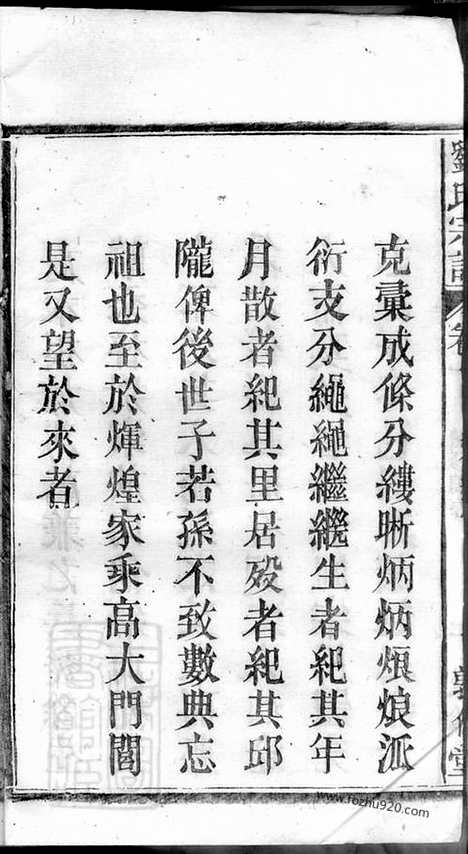 劉氏宗譜
克彙成條分縷晰炳炳烺烺派
衍支分繩繩繼繼生者紀其年
月散者紀其里居殁者紀其邱
隴俾後世子若孫不致數典忘
祖也至於煇煌家乘高大門閭
是又望於來者
www.fozhu920.com